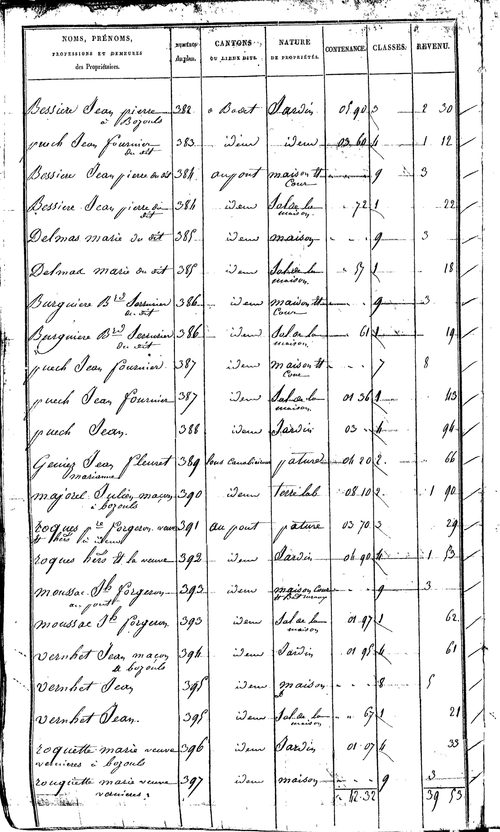 NOMS, PRÉNOMS, PROFESSIONS ET DEMEURES des Propriétaires. NUMÉROS du plan. CANTONS OU LIEUX DITS. NATURE DE PROPRIÉTÉS. CONTENANCE. CLASSES. REVENU.
Bessiere Jean pierre à Bozouls 382 Jardin 05 90 3 2 30
puech Jean fournier du dit 383 idem idem 03 60 4 1 12
Bessiere Jean pierre du dit 384 au pont maison et Cour 9 3
Bessiere Jean pierre du dit 384 idem Sol de la maison 72 1 22
Delmas marie du dit 385 idem maison 9 3
Delmas marie du dit 385 idem Sol de la maison 57 1 18
Burguiere Serrurier du dit 386 idem maison et Cour 9 3
Burguiere Serrurier du dit 386 idem Sol de la maison 61 1 19
puech Jean fournier 387 idem maison et Cour 7 8
puech Jean fournier 387 idem Sol de la maison 01 36 1 43
puech Jean. 388 idem Jardin 03 4 94
Geniez Jean fleuret 389 pature 04 20 2 66
majorel Julien maçon à bozouls 390 idem terre lab 08 10 2 1 90
roques forgeron 391 au pont pature 03 70 3 29
roques hérs et la veuve 392 idem Jardin 06 90 4 1 53
moussac Jh forgeron au pont 393 idem maison Cour 9 3
moussac Jh forgeron 393 idem Sol de la maison 01 97 1 62
vernhet Jean maçon à bozouls 394 idem Jardin 01 95 4 61
vernhet Jean 395 idem maison 8 5
vernhet Jean. 395 idem Sol de la maison 67 1 21
roquette marie veuve vernieres à bozouls 396 idem Jardin 01 07 4 33
rouquette marie veuve vernieres 397 idem maison 9 3
42.32 39 53